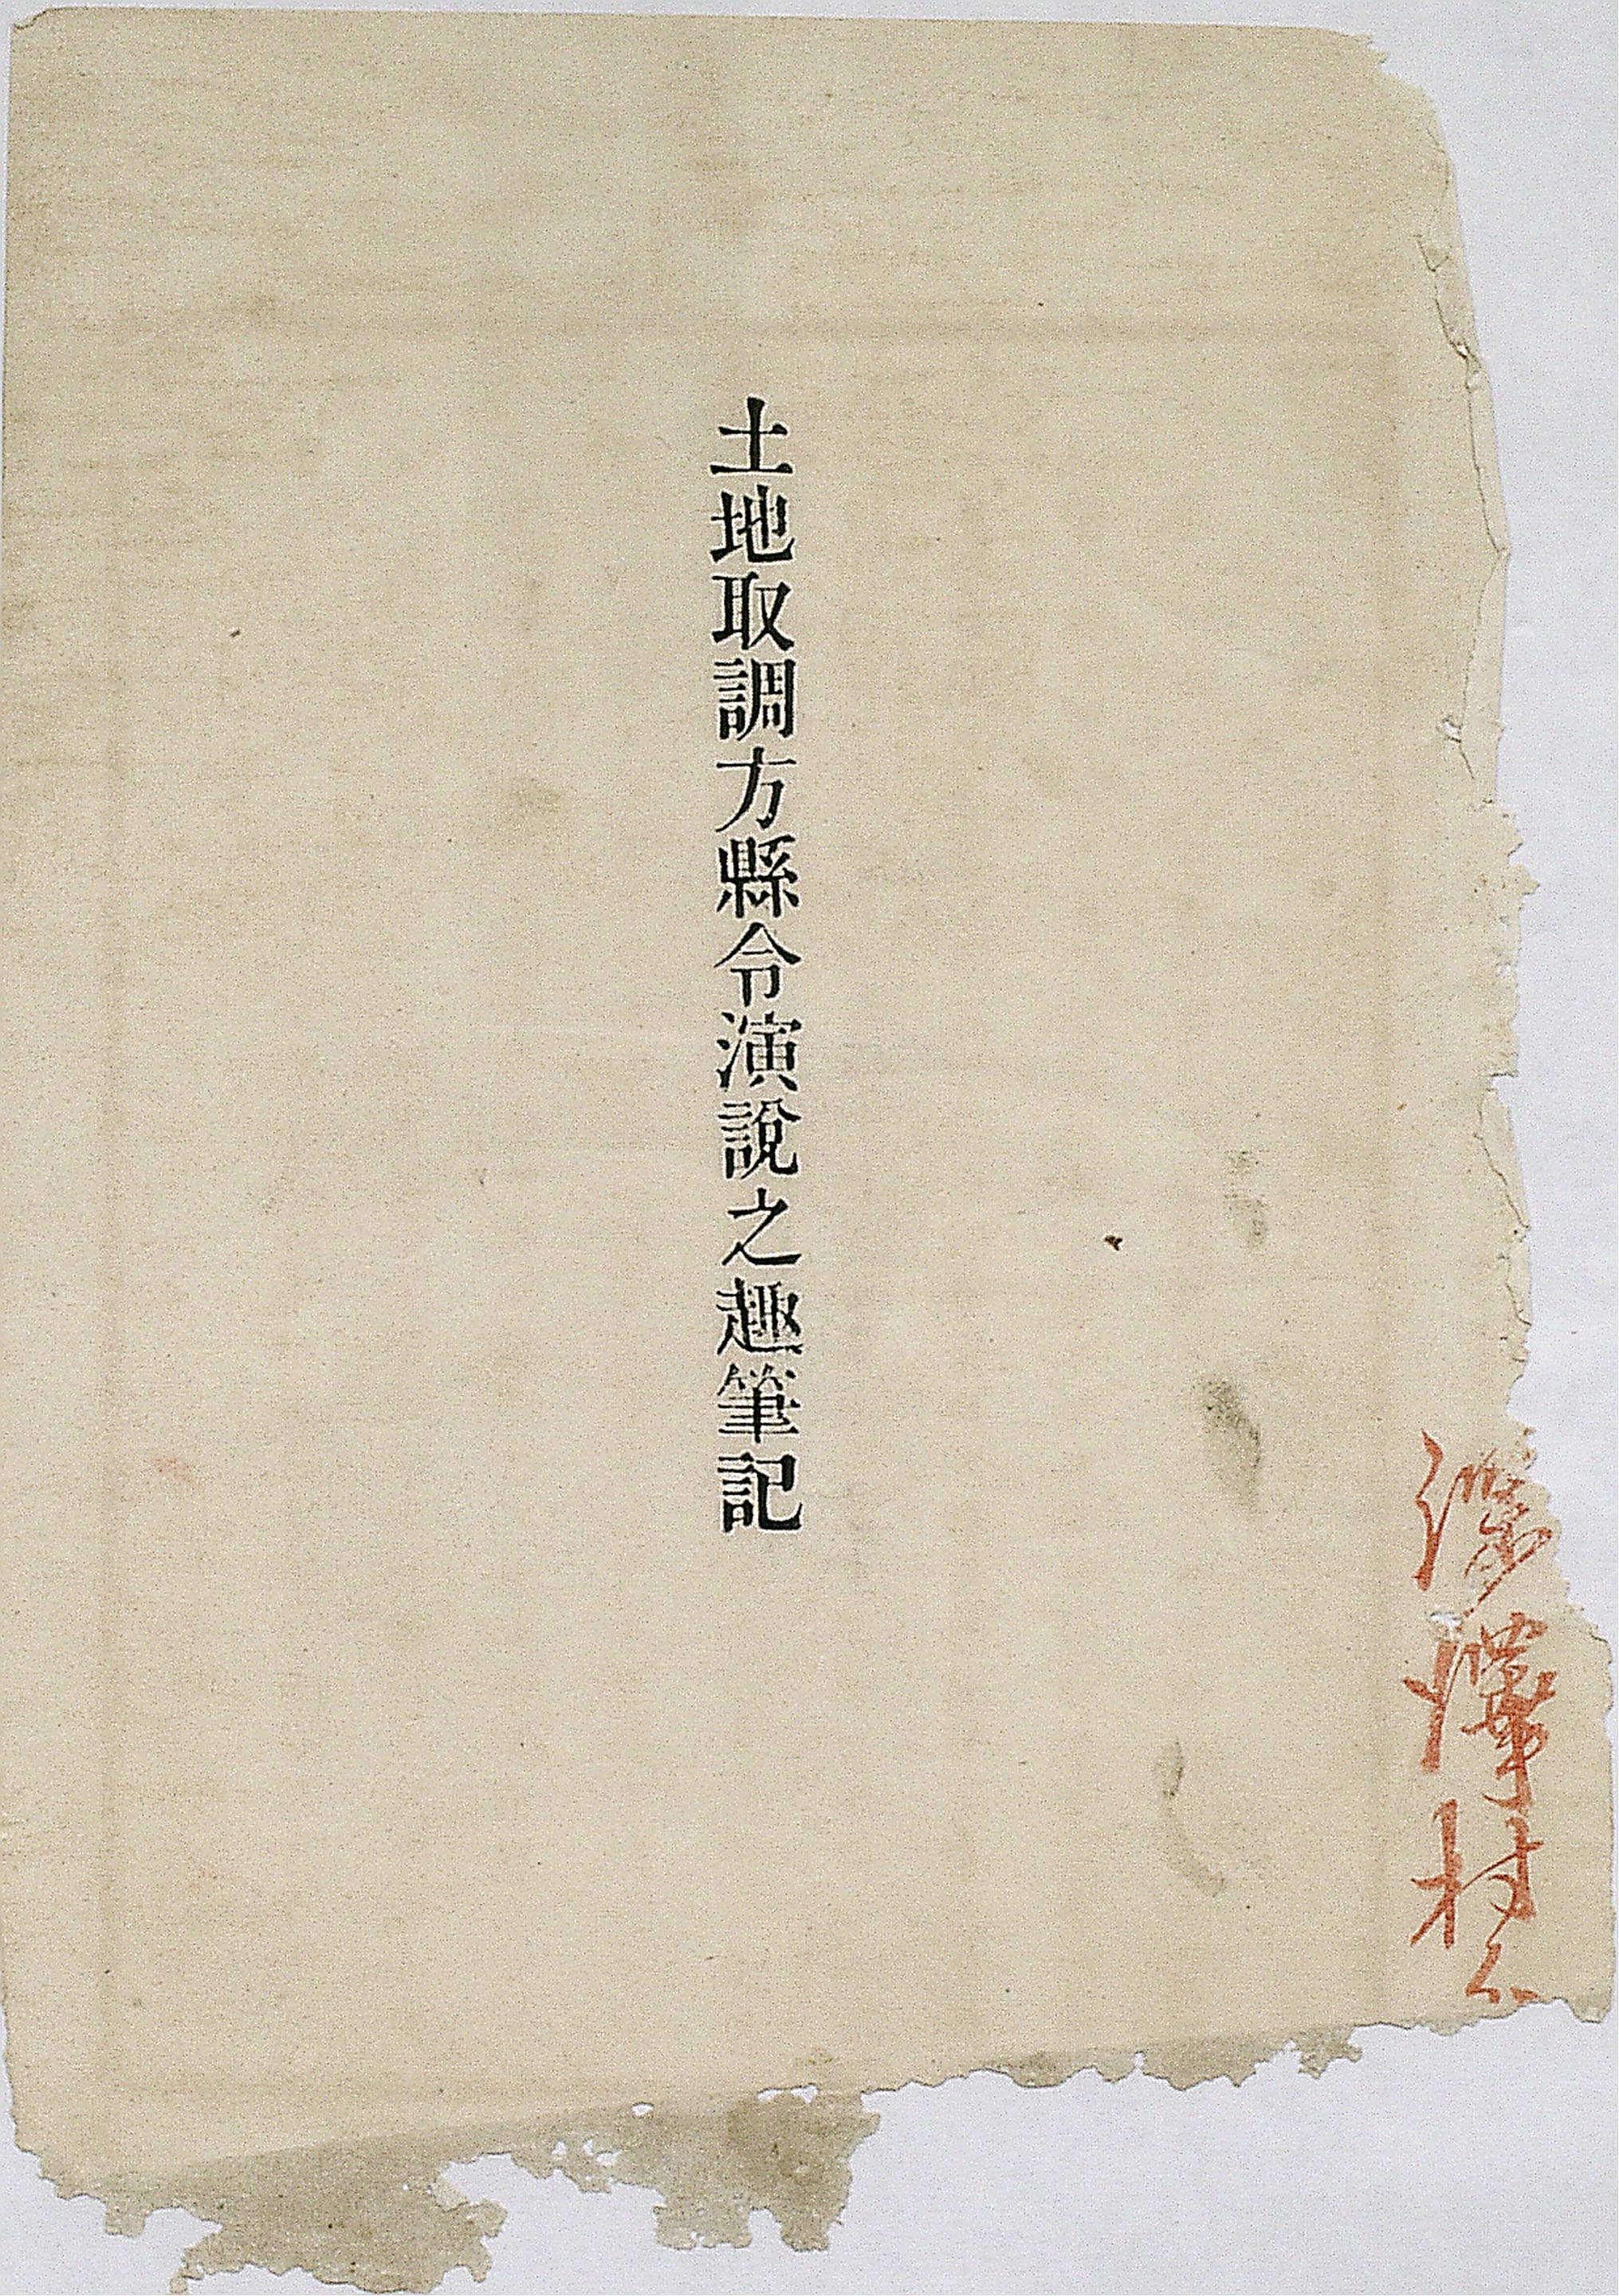 澤村
土地取調方縣令演說之趣筆記